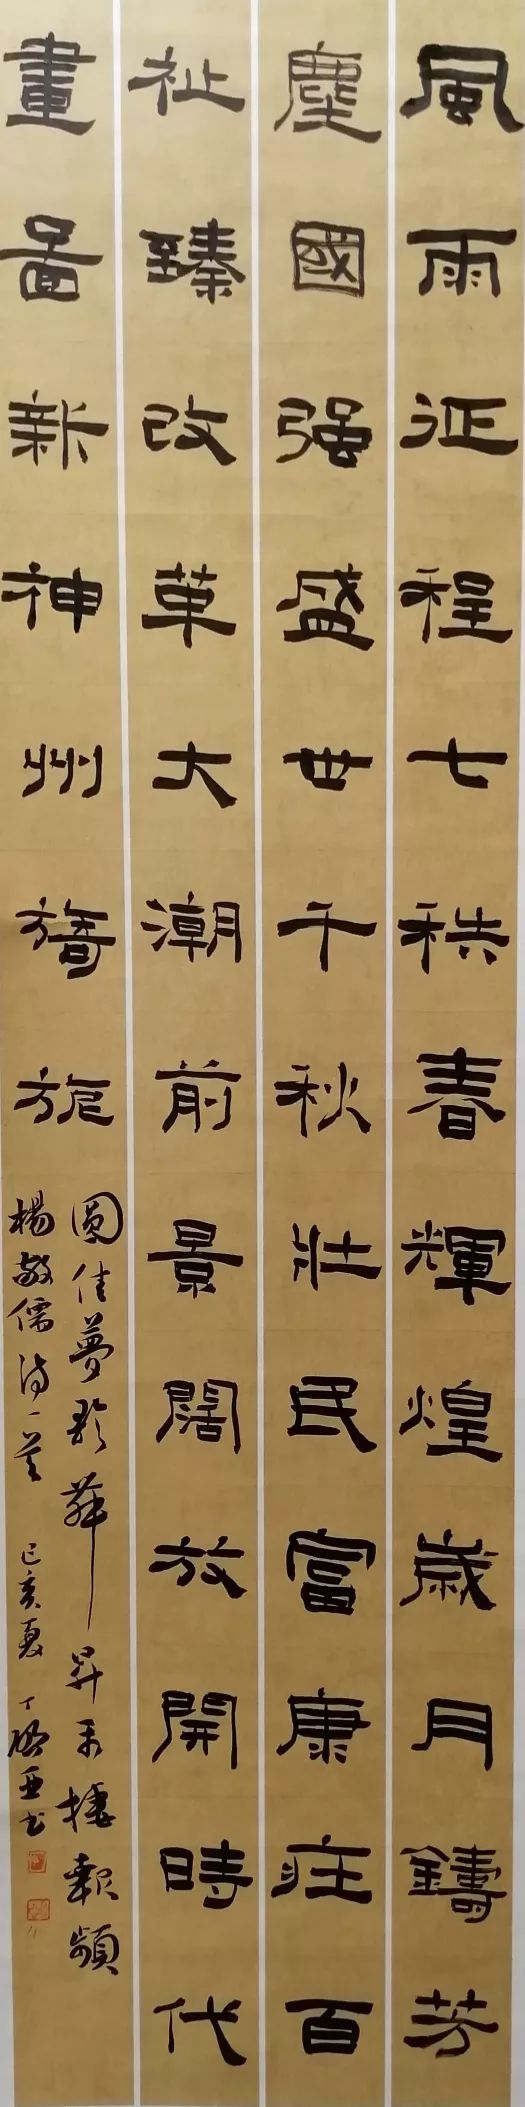 風雨征程七秩春輝煌歲月鑄芳
塵國强盛世千秋壯民富康莊百
祉臻改革大潮前景闊放開時代
畫圖新神州旖旎
圓佳夢歌舞昇平捷報頻
楊敬儒詩一首 己亥夏 丁啓亞書